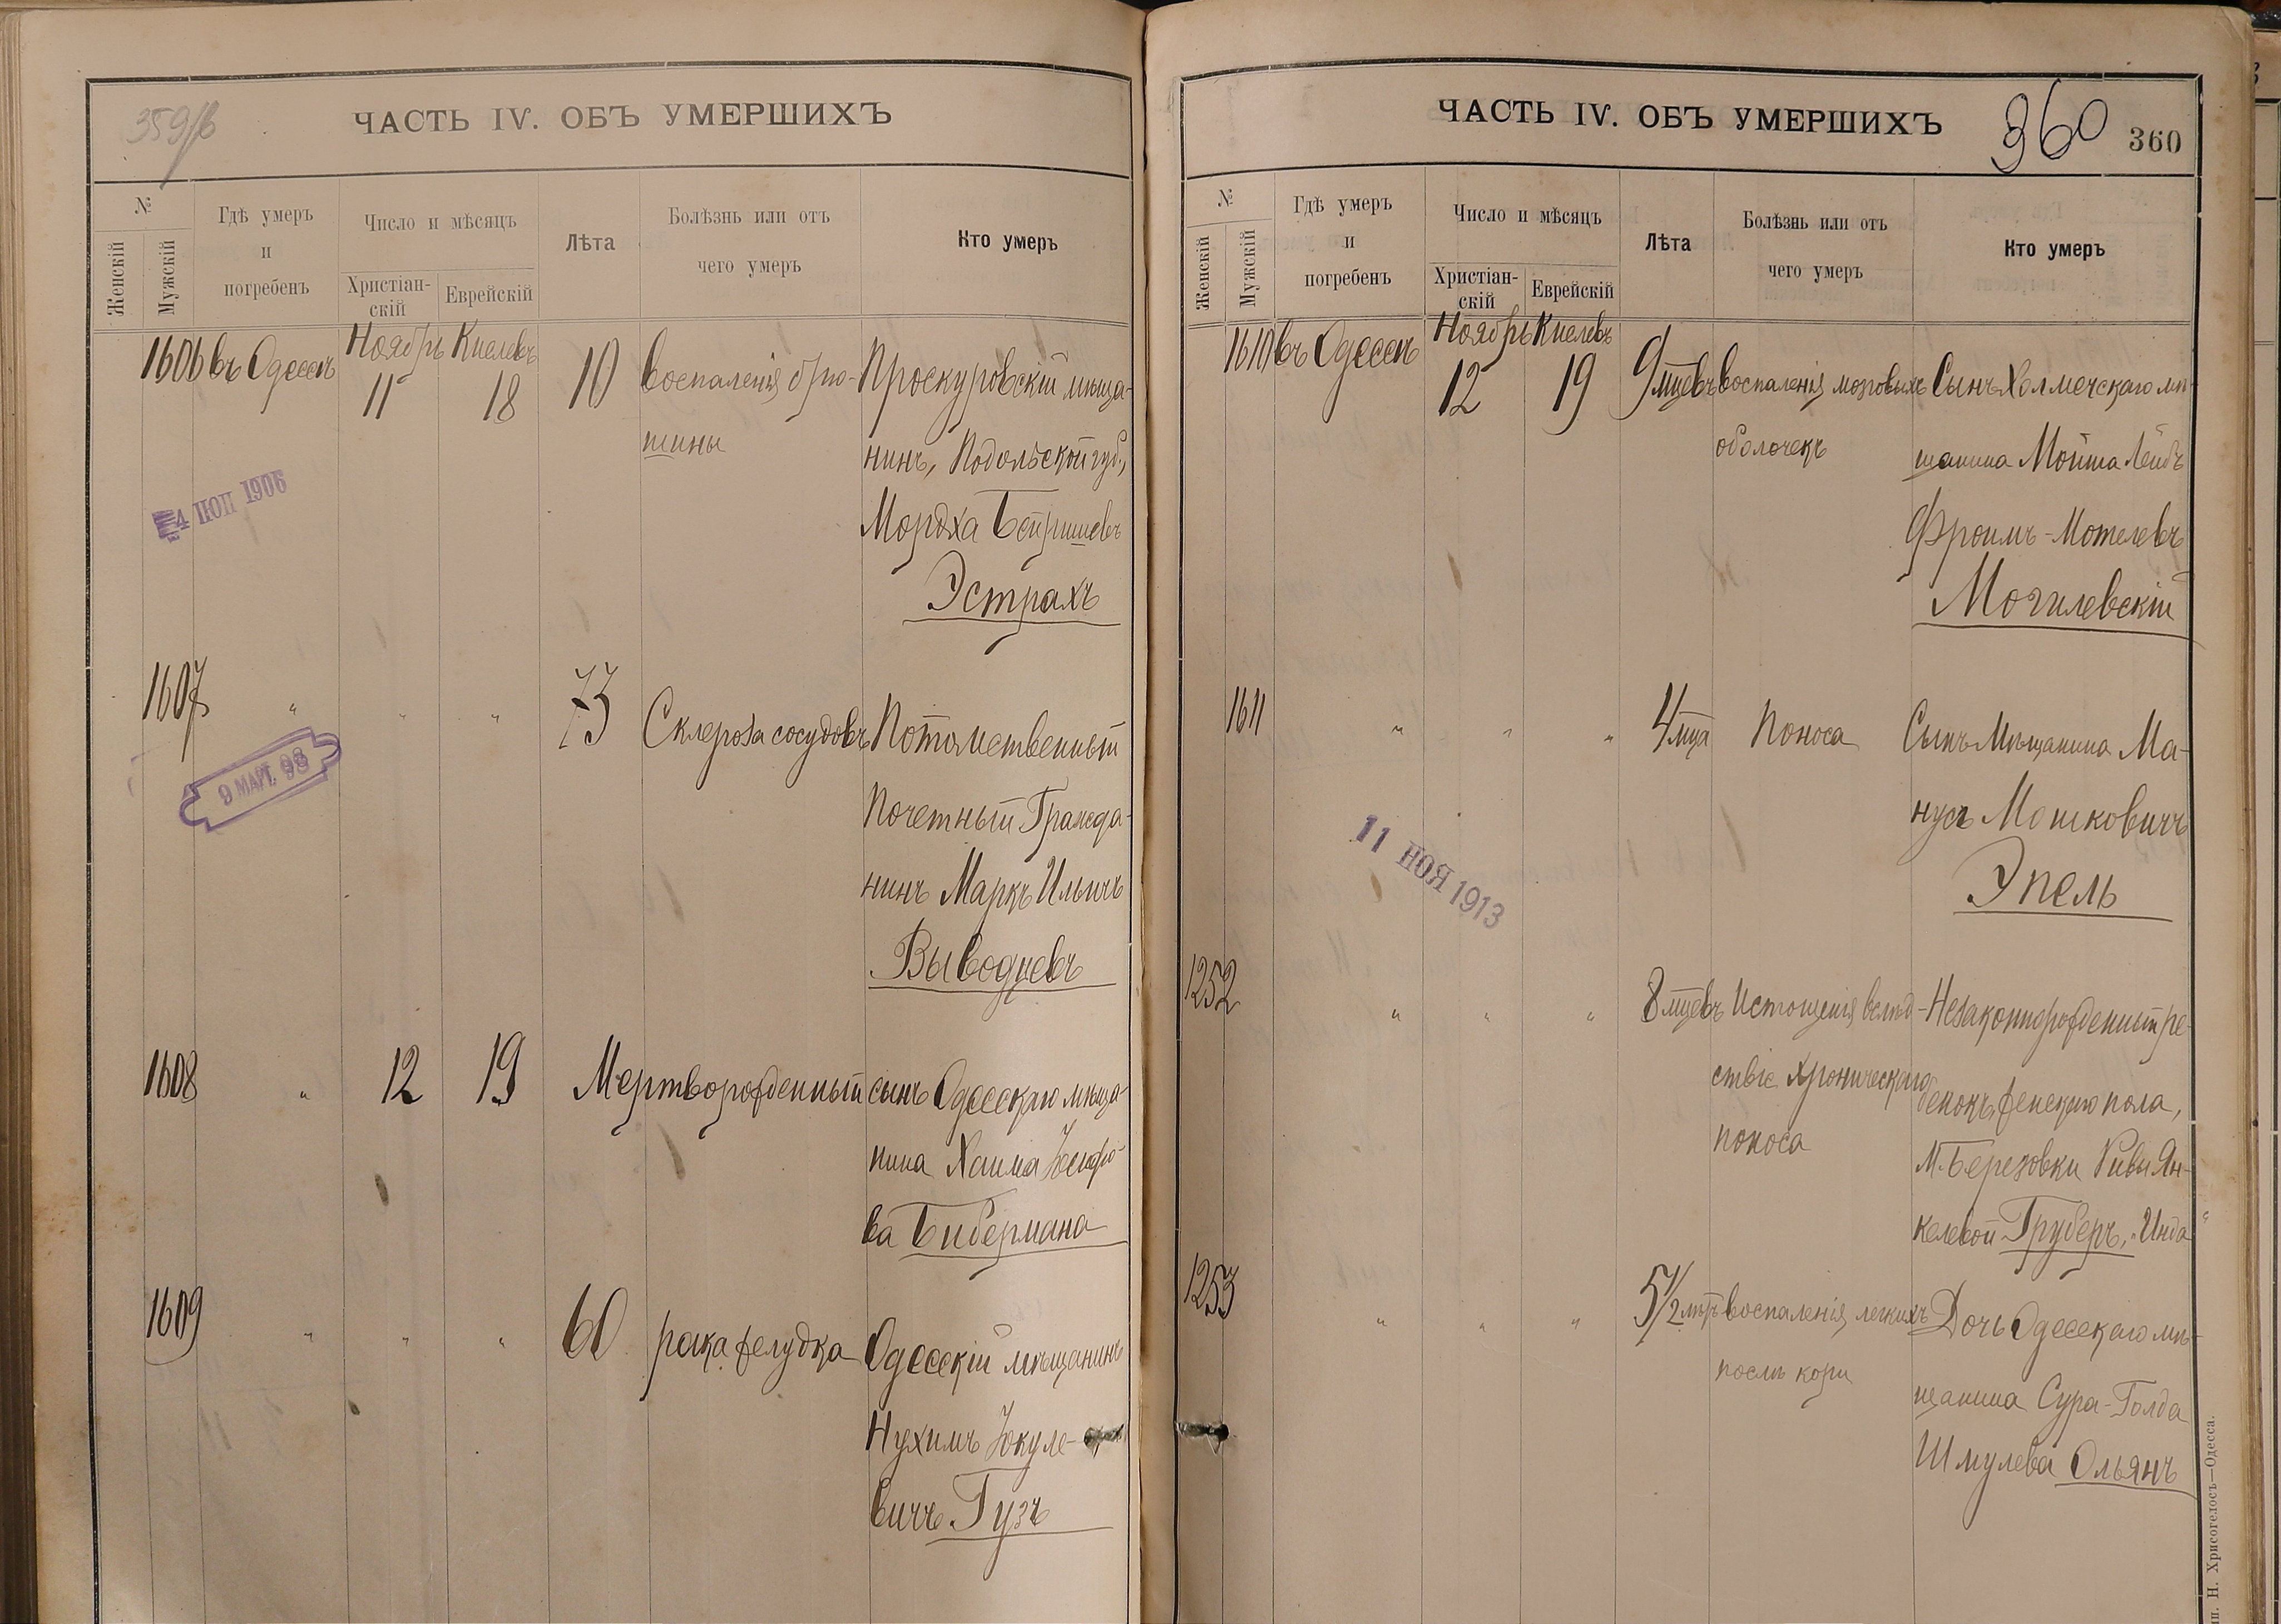 359/б
ЧАСТЬ IV. ОБЪ УМЕРШИХЪ
№
Женскій
Мужскій
Гдѣ умеръ
и
погребенъ
Число и мѣсяцъ
Христіан-
скій
Еврейскій
Лѣта
Болѣзнь или отъ
чего умеръ
Кто умеръ
1606 въ Одессѣ Ноябрь 11 Кислевъ 18 10 воспаленія брю- Проскуровскій мѣща-
шины нинъ, Подольской губ.,
Мордха Берішевъ
Эстрахъ
4 1906
1607 " " " 73 Склероза сосудовъ Потомственный
Почетный Гражда-
нинъ Маркъ Ильичъ
Выводцевъ
9 МАРТ. 98
1608 " 12 19 Мертворожденный сынъ Одесскаго мѣща-
нина Хаима Іосифо-
ва Бибермана
1609 " " " 60 рака желудка Одесскій мѣщанинъ
Нухимъ Іокуле-
вичъ Гузъ
ЧАСТЬ IV. ОБЪ УМЕРШИХЪ
360
360
№
Женскій
Мужскій
Гдѣ умеръ
и
погребенъ
Число и мѣсяцъ
Христіан-
скій
Еврейскій
Лѣта
Болѣзнь или отъ
чего умеръ
Кто умеръ
1610 въ Одессѣ Ноябрь 12 Кислевъ 19 9 мцевъ воспаленія мозговыхъ Сынъ Холмечскаго мѣ-
оболочекъ щанина Мойша Лейбъ
Фроимъ-Мотелевъ
Могилевскій
1611 " " " 4 мца Поноса Сынъ Мѣщанина Ма-
нусъ Мошковичъ
Эпель
11 НОЯ 1913
1252 " " " 8 мцевъ Истощенія вслѣд- Незаконнорожденный ре-
ствіе хроническаго бенокъ женскаго пола,
поноса М. Березовки Ривы Ян-
келевой Груберъ, "Инда"
1253 " " " 5 1/2 лѣтъ воспаленія легкихъ Дочь Одесскаго мѣ-
послѣ кори щанина Сура-Голда
Шмулева Ольянъ
Н. Хрисогелосъ—Одесса.